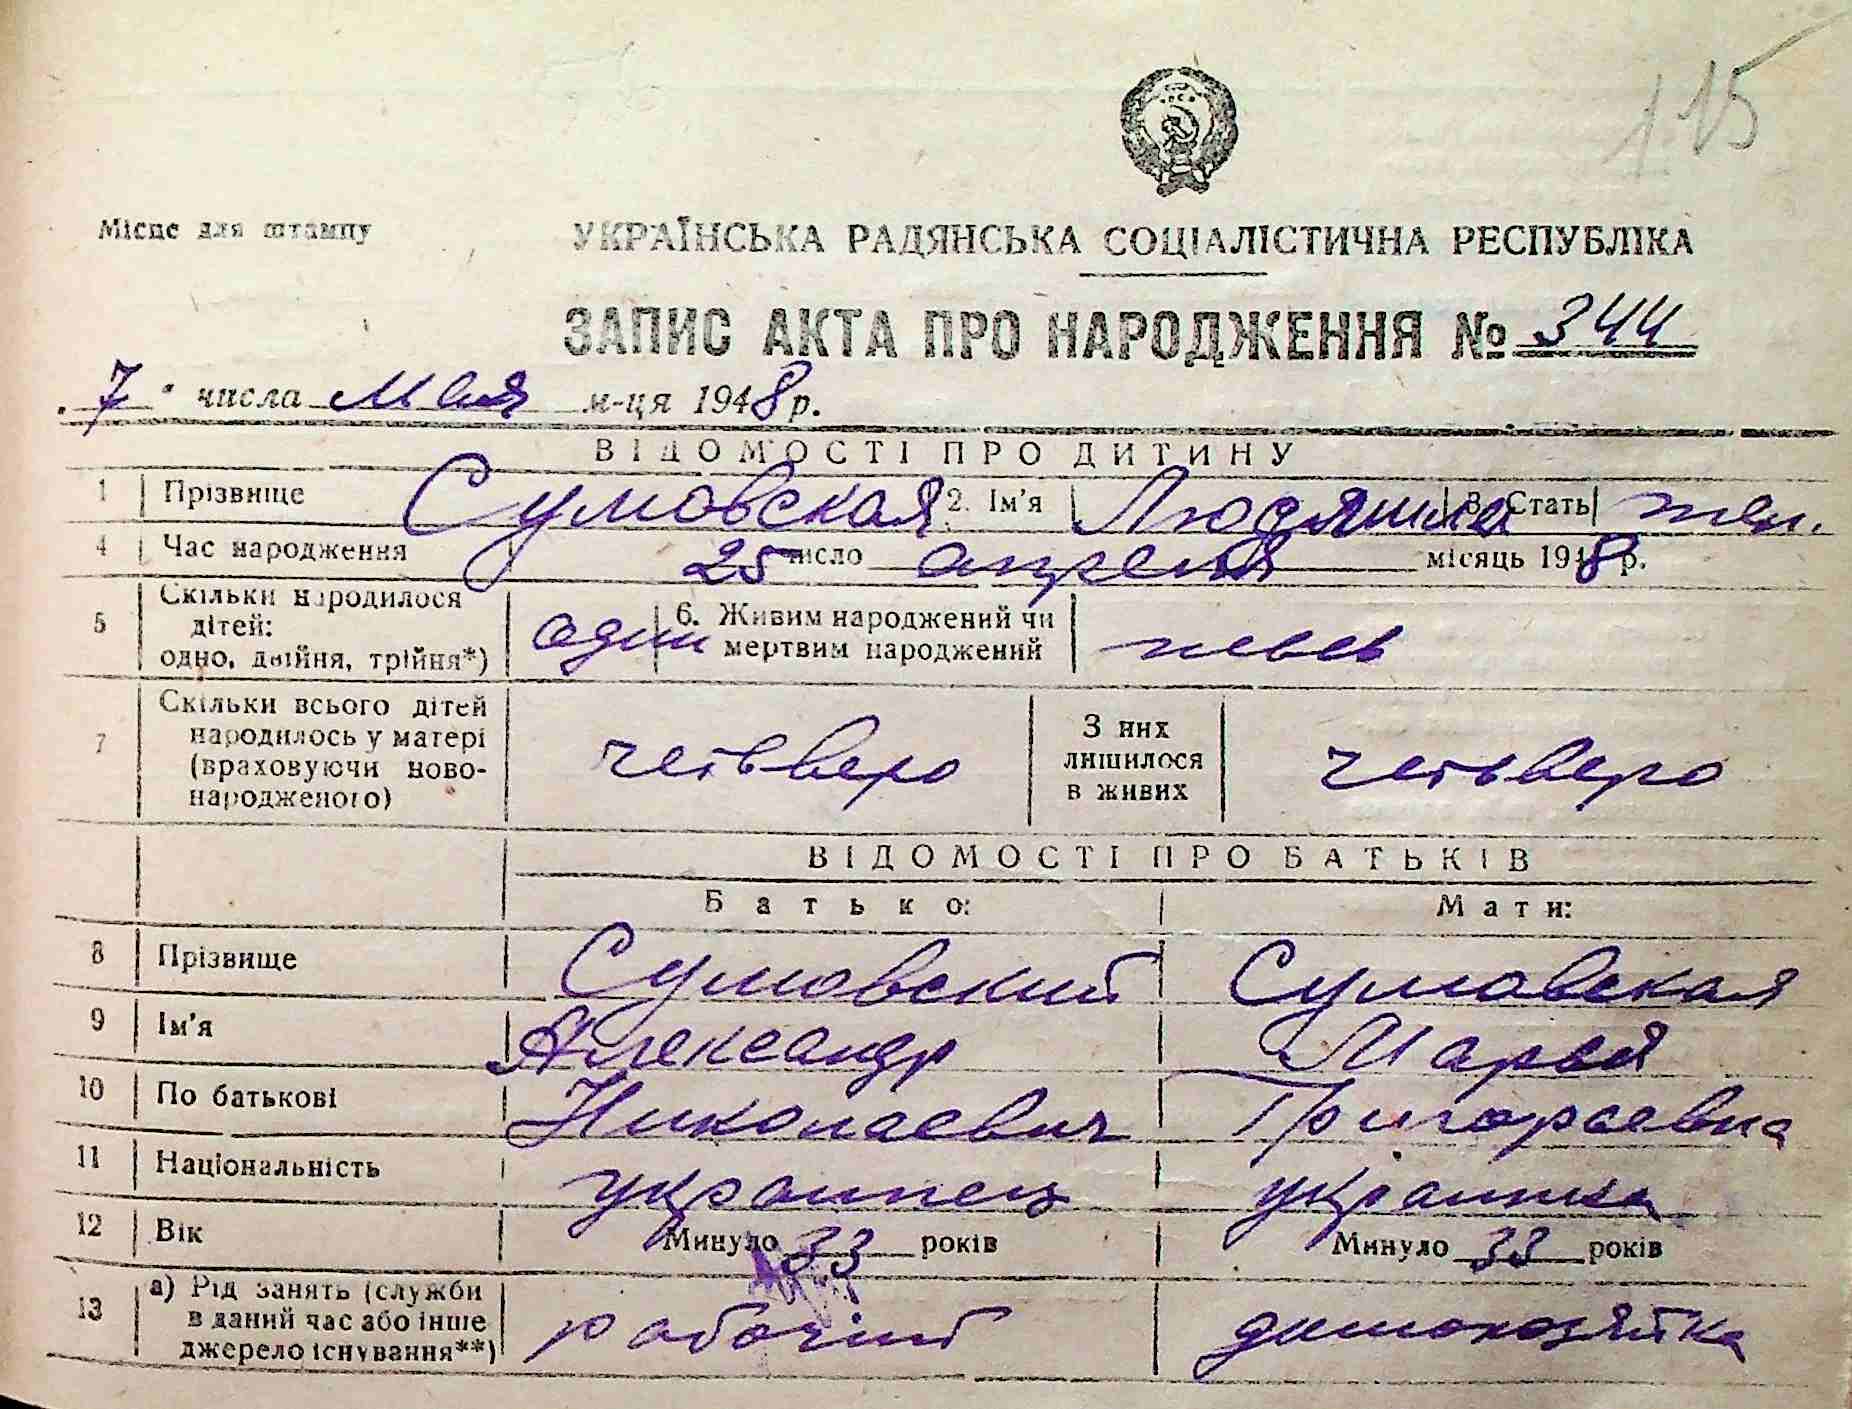 115
Місце для штампу
УКРАЇНСЬКА РАДЯНСЬКА СОЦІАЛІСТИЧНА РЕСПУБЛІКА
ЗАПИС АКТА ПРО НАРОДЖЕННЯ № 344
„7“ числа мая м-ця 1948 р.
ВІДОМОСТІ ПРО ДИТИНУ
1 Прізвище Сумовская 2. Ім'я Людмила 3. Стать жен.
4 Час народження 25 число апреля місяць 1948 р.
5 Скільки народилося
дітей:
одно, двійня, трійня*) один
6. Живим народжений чи
мертвим народжений
7 Скільки всього дітей
народилось у матері
(враховуючи ново-
народженого) четверо
З них
лишилося
в живих четверо
ВІДОМОСТІ ПРО БАТЬКІВ
Батько: Мати:
8 Прізвище Сумовский Сумовская
9 Ім'я Александр Мария
10 По батькові Николаевич Григорьевна
11 Національність украинец украинка
12 Вік Минуло 33 років Минуло 33 років
13 а) Рід занять (служби
в даний час або інше
джерело існування**) рабочий домохозяйка